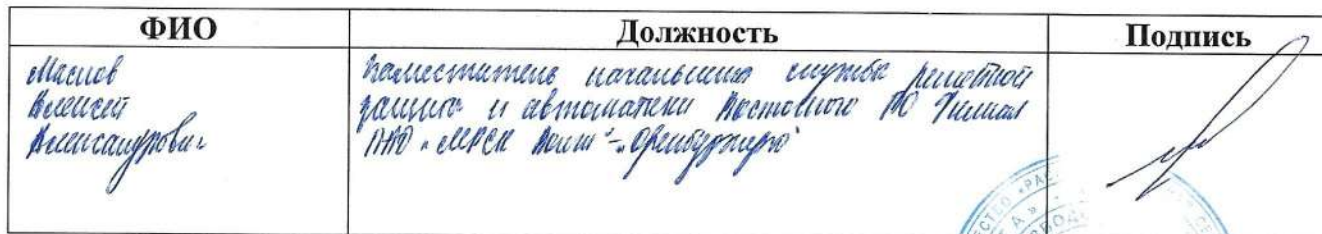 ФИО Должность Подпись
Маслов
Алексей
Александрович
Заместитель начальника службы релейной
защиты и автоматики Восточного ПО Филиал
ПАО "МРСК Волги"-"Оренбургэнерго"